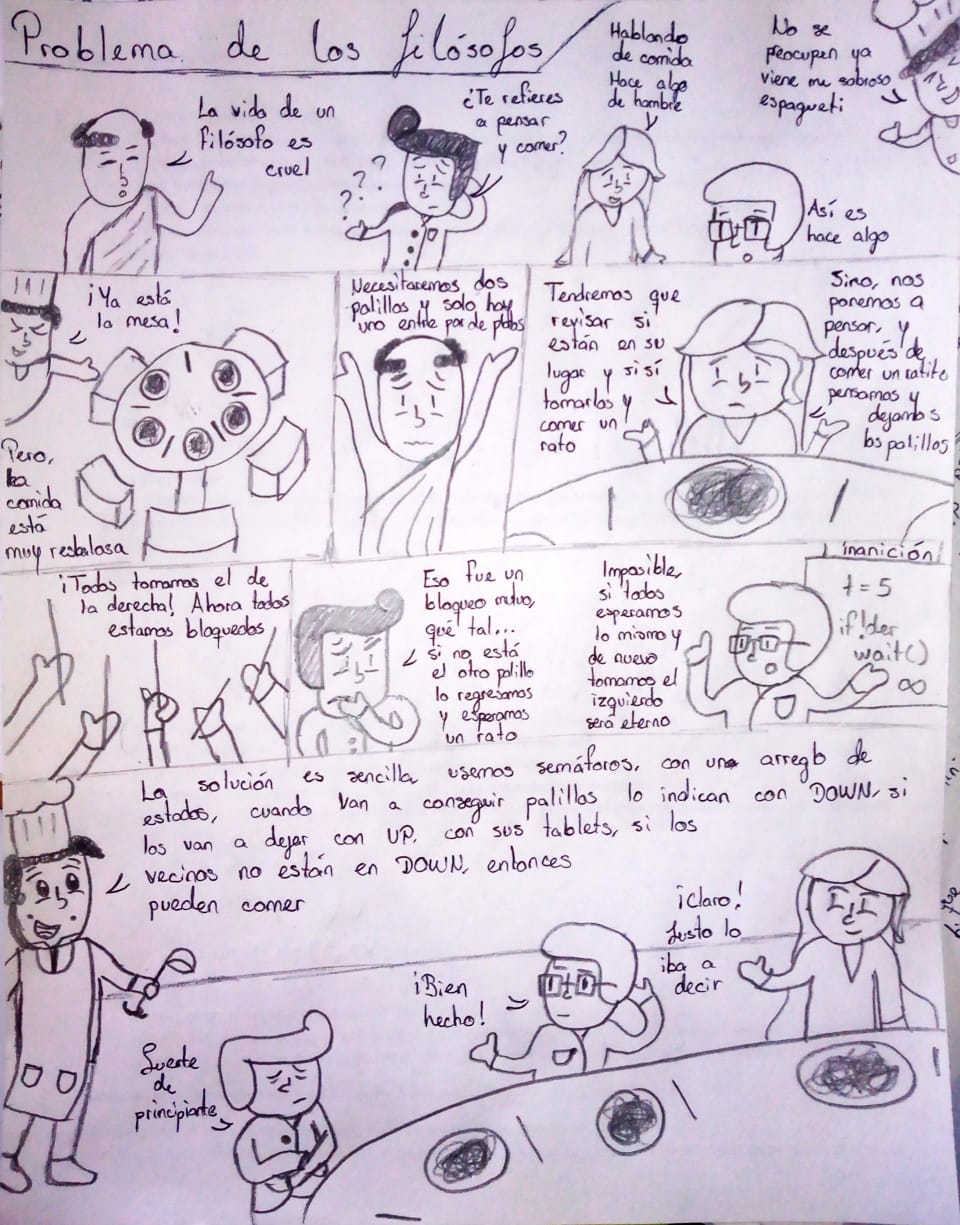 Problema de los filósofos
La vida de un
filósofo es
cruel
¿Te refieres
a pensar
y comer?
? ? ?
Hablando
de comida
Hace algo
de hambre
No se
peocupen ya
viene mu sobroso
espagueti
Así es
hace algo
¡Ya está
la mesa!
Pero,
la
comida
está
muy resbalosa
Necesitaremos dos
palillos y solo hay
uno entre par de platos
Tendremos que
revisar si
están en su
lugar y si sí
tomarlos y
comer un
rato
Sino, nos
ponemos a
pensar, y
después de
comer un ratito
pensamos y
dejamos
los palillos
¡Todos tomamos el de
la derecha! Ahora todos
estamos bloqueados
Eso fue un
bloqueo mutuo,
qué tal...
si no está
el otro palillo
lo regresamos
y esperamos
un rato
Imposible,
si todos
esperamos
lo mismo y
de nuevo
tomamos el
izquierdo
será eterno
Inanición
t = 5
if !der
wait()
∞
La solución es sencilla, usemos semáforos, con un arreglo de
estados, cuando van a conseguir palillos lo indican con DOWN, si
los van a dejar con UP, con sus tablets, si los
vecinos no están en DOWN, entonces
pueden comer
Suerte
de
principiante
¡Bien
hecho!
¡Claro!
Justo lo
iba a
decir